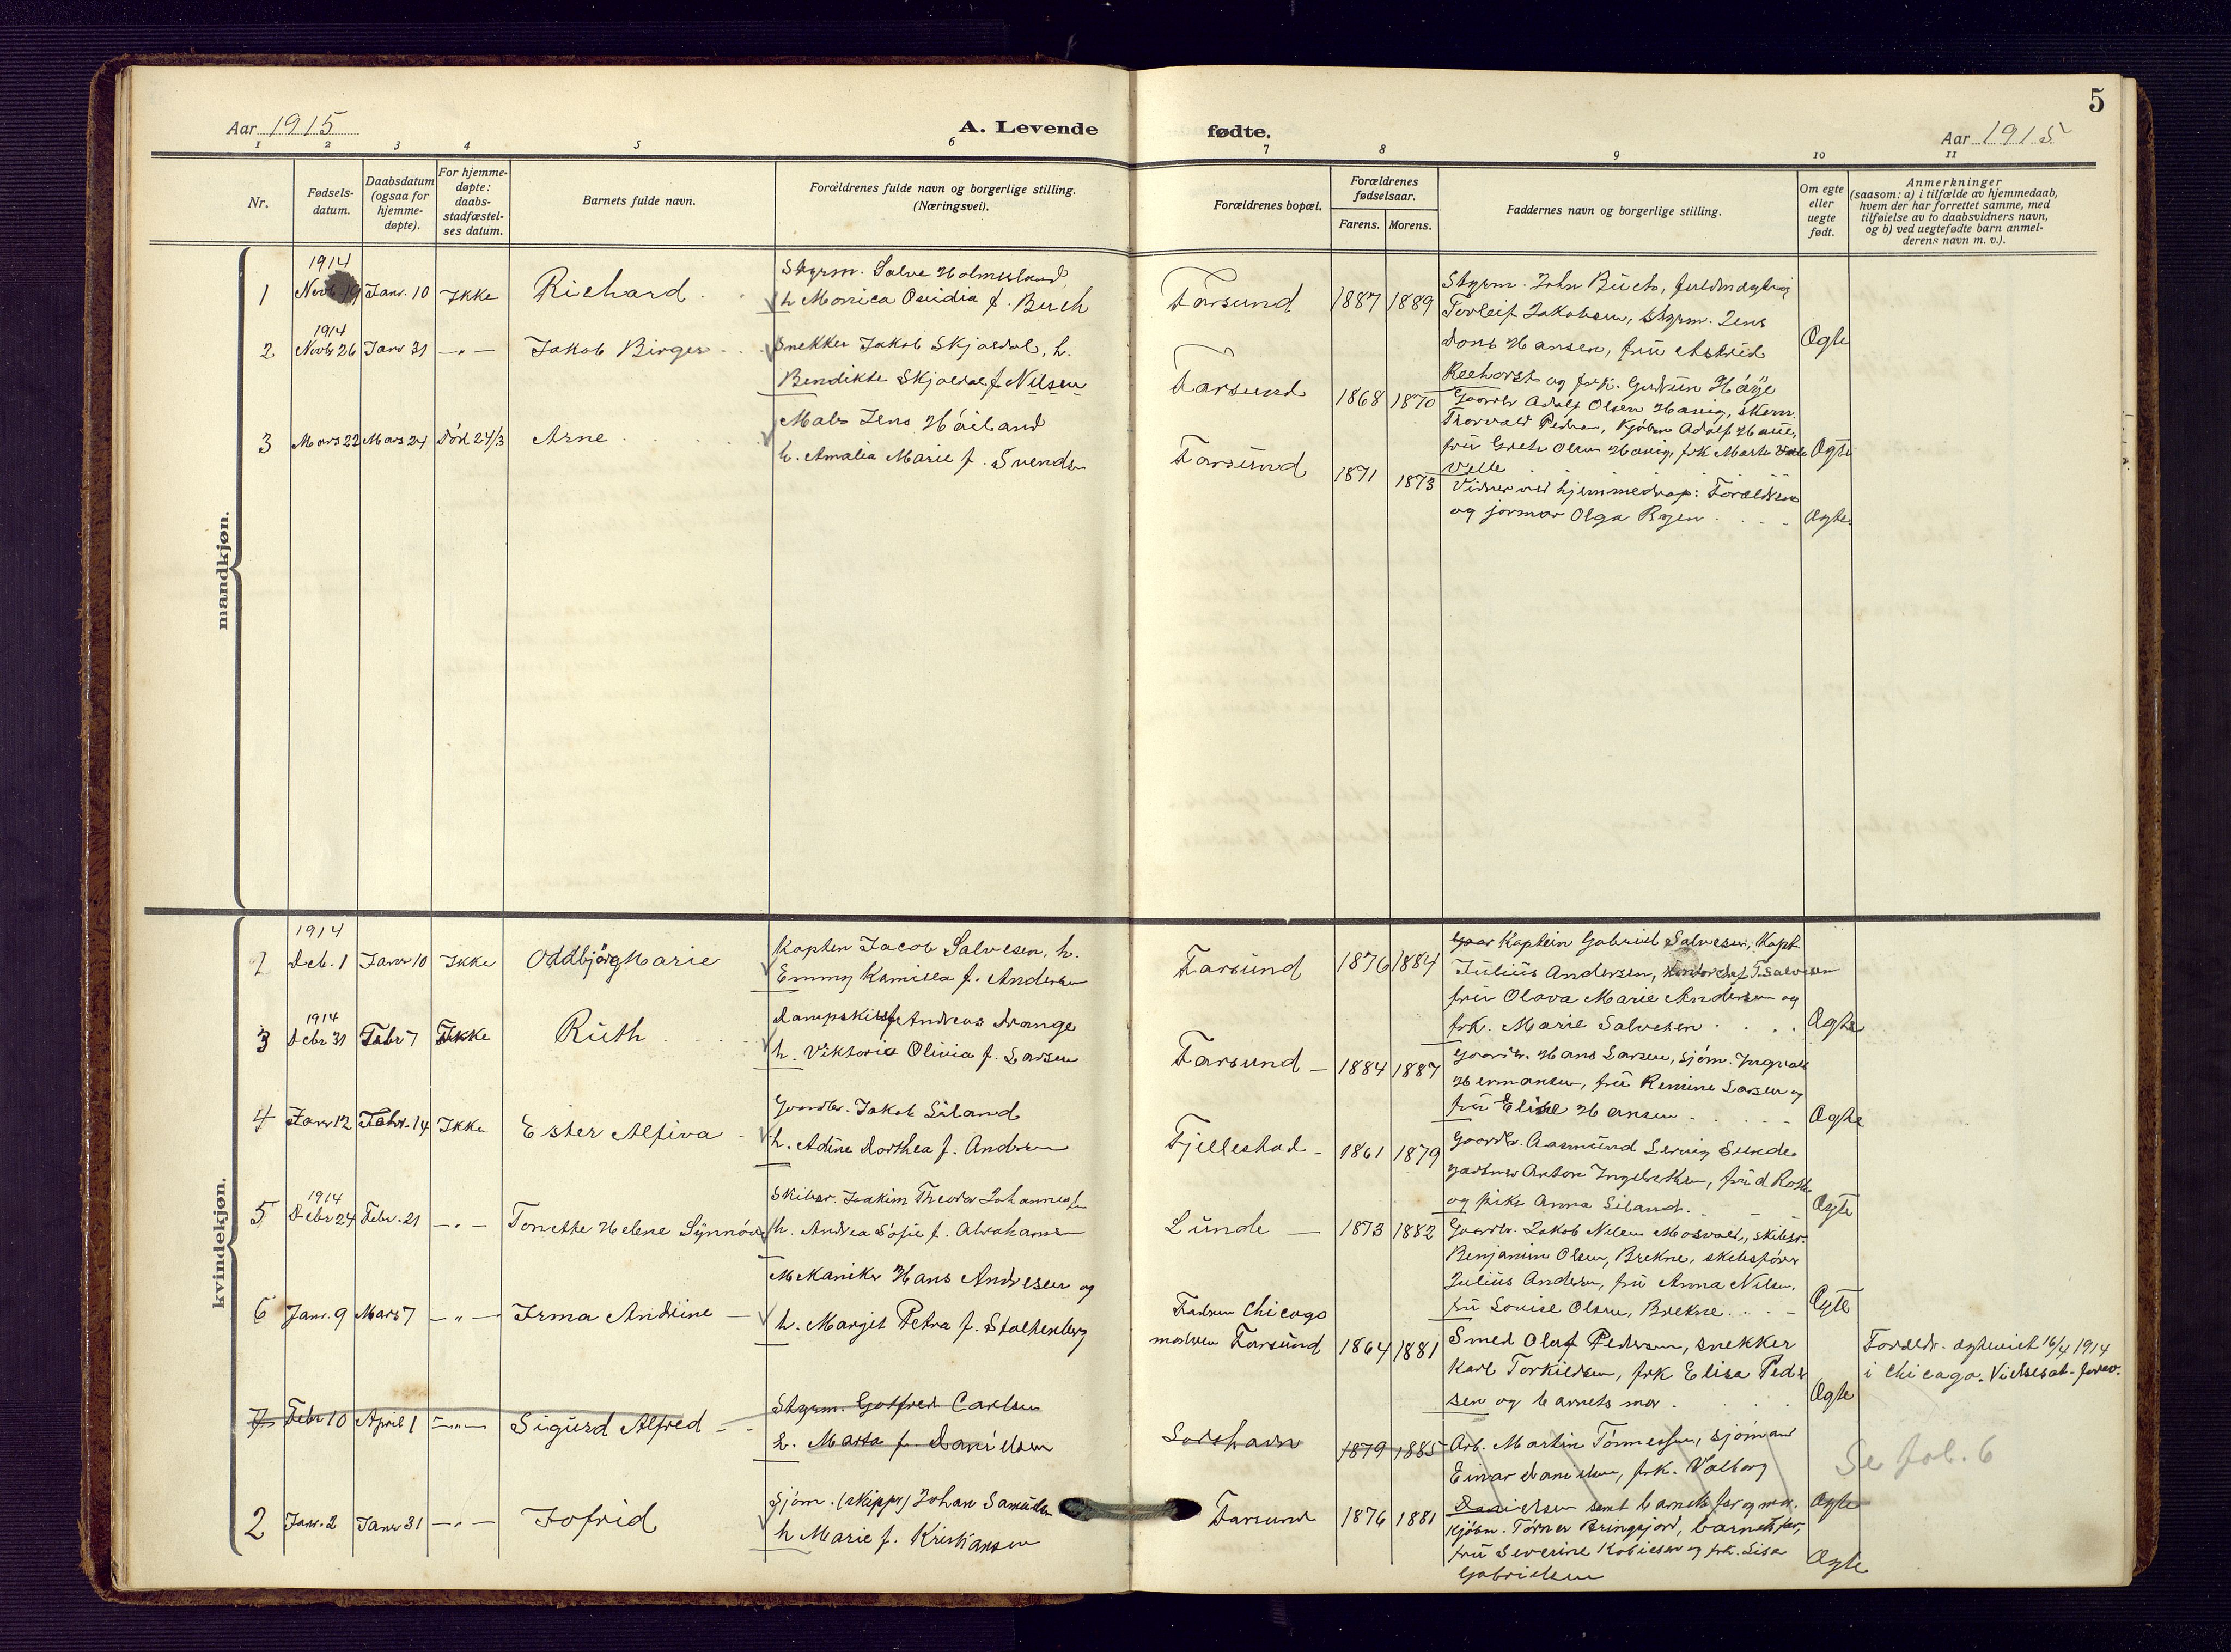 5
Aar 1915
A. Levende
fødte.
Aar 1915
1 2 3 4 5 6 7 8 9 10 11
Nr.
Fødsels-
datum.
Daabsdatum
(ogsaa for
hjemme-
døpte).
For hjemme-
døpte:
daabs-
stadfæstel-
ses datum.
Barnets fulde navn.
Forældrenes fulde navn og borgerlige stilling.
(Næringsvei).
Forældrenes bopæl.
Forældrenes
fødselsaar.
Farens. Morens.
Faddernes navn og borgerlige stilling.
Om egte
eller
uegte
født.
Anmerkninger
(saasom: a) i tilfælde av hjemmedaab,
hvem der har forrettet samme, med
tilføielse av to daabsvidners navn,
og b) ved uegtefødte barn anmel-
derens navn m. v.).
mandkjøn.
1914
1 Novb 19 Janr. 10 Ikke Richard
Styrm. Salve Holmesland,
h Monica Ovidia f. Buch
Farsund 1887 1889
Styrm. John Buch, fuldmægtig
Torleif Jakobsen, styrm. Jens
Dons Hansen, frü Astrid
Reehorst og frk. Gudrün Höÿe
Ægte
1914
2 Novbr 26 Janr 31 —„— Jakob Birger
Snekker Jakob Skjoldal, h.
Bendikte Skjoldal f Nilsen
Farsund 1868 1870
Gaardbr Adolf Olsen Hanig,
Thorvald Pedersen, Kjöbm Adolf
frü Grete Olsen Hanig, frk Marte
Velle
Ægte
3 Mars 22 Mars 24 Död 24/3 Arne
Maler Jens Höiland
h. Amalia Marie f. Svendsen
Farsünd 1871 1873
Vidner ved hjemmedaap: Forældrene
og jormor Olga Ryen
Ægte
kvindekjøn.
1914
1 Deb. 1 Janr 10 Ikke Oddbjörg Marie
Kaptein Jacob Salvesen, h.
Emmy Kamilla f. Andersen
Farsünd 1876 1884
Kaptein Gabriel Salvesen, Kapt
Jülius Andersen, T. Salvesen
früe Olava Marie Andersen og
frk. Marie Salvesen
Ægte
1914
3 Debr 31 Febr 7 Ikke Rüth
Andreas Drange
h. Viktoria Olivia f. Larsen
Farsund — 1884 1887
Gaardbr. Hans Larsen, sjöm. Ingvald
Hermansen, frü Remine Larsen og
frü Elise Hansen
Ægte
4 Janr 12 Febr. 14 Ikke Ester Alfiva
Gaardbr. Jakob Siland
h. Adine Dorthea f. Andersen
Fjellestad — 1861 1879
Gaardbr. Aasmünd Lervig Sunde
gartner Anton Ingebretsen, frü
og pike Anna Siland.
Ægte
1914
5 Debr 24 Febr. 21 —„— Tonette Helene Synnöve
Skibsr. Joakim Theodor Johannesen
h. Andrea Sofie f. Abrahamsen
Lünde — 1873 1882
Gaardbr. Jakob Nilsen Mosvold, skibsr.
Benjamin Olsen, Brekne, skibsförer
Julius Andersen, frü Anna Nilsen,
frü Louise Olsen, Brekne
Ægte
6 Janr. 9 Mars 7 —„— Irma Andrine
Mekaniker Hans Andresen og
h. Margit Petra f. Stoltenberg
Faderen Chicago
moderen Farsünd 1864 1881
Smed Olaf Pedersen, snekker
Karl Torkildsen, frk Elisa Peder
sen og barnets mor
Ægte
Forældr. ægteviet 16/4 1914
i Chicago. Vielsesat. forev.
7 Febr 10 April 1 —„— Sigurd Alfred
Styrm. Gotfred Carlsen
h. Marta f. Danielsen
Loshavn 1879 1885
Arb. Martin Tönnessen, sjömand
Einar Danielsen, frk. Valborg
Danielsen samt barnets far og mor.
Ægte
Se fol. 6
2 Janr. 2 Janr 31 —„— Jofrid
Sjöm. (skipper) Johan Samüelsen
h Marie f. Kristiansen
Farsund 1876 1881
Kjöbm. Bringsjord, barnets far,
frü Severine og frk. Lisa
Gabrielsen
Ægte